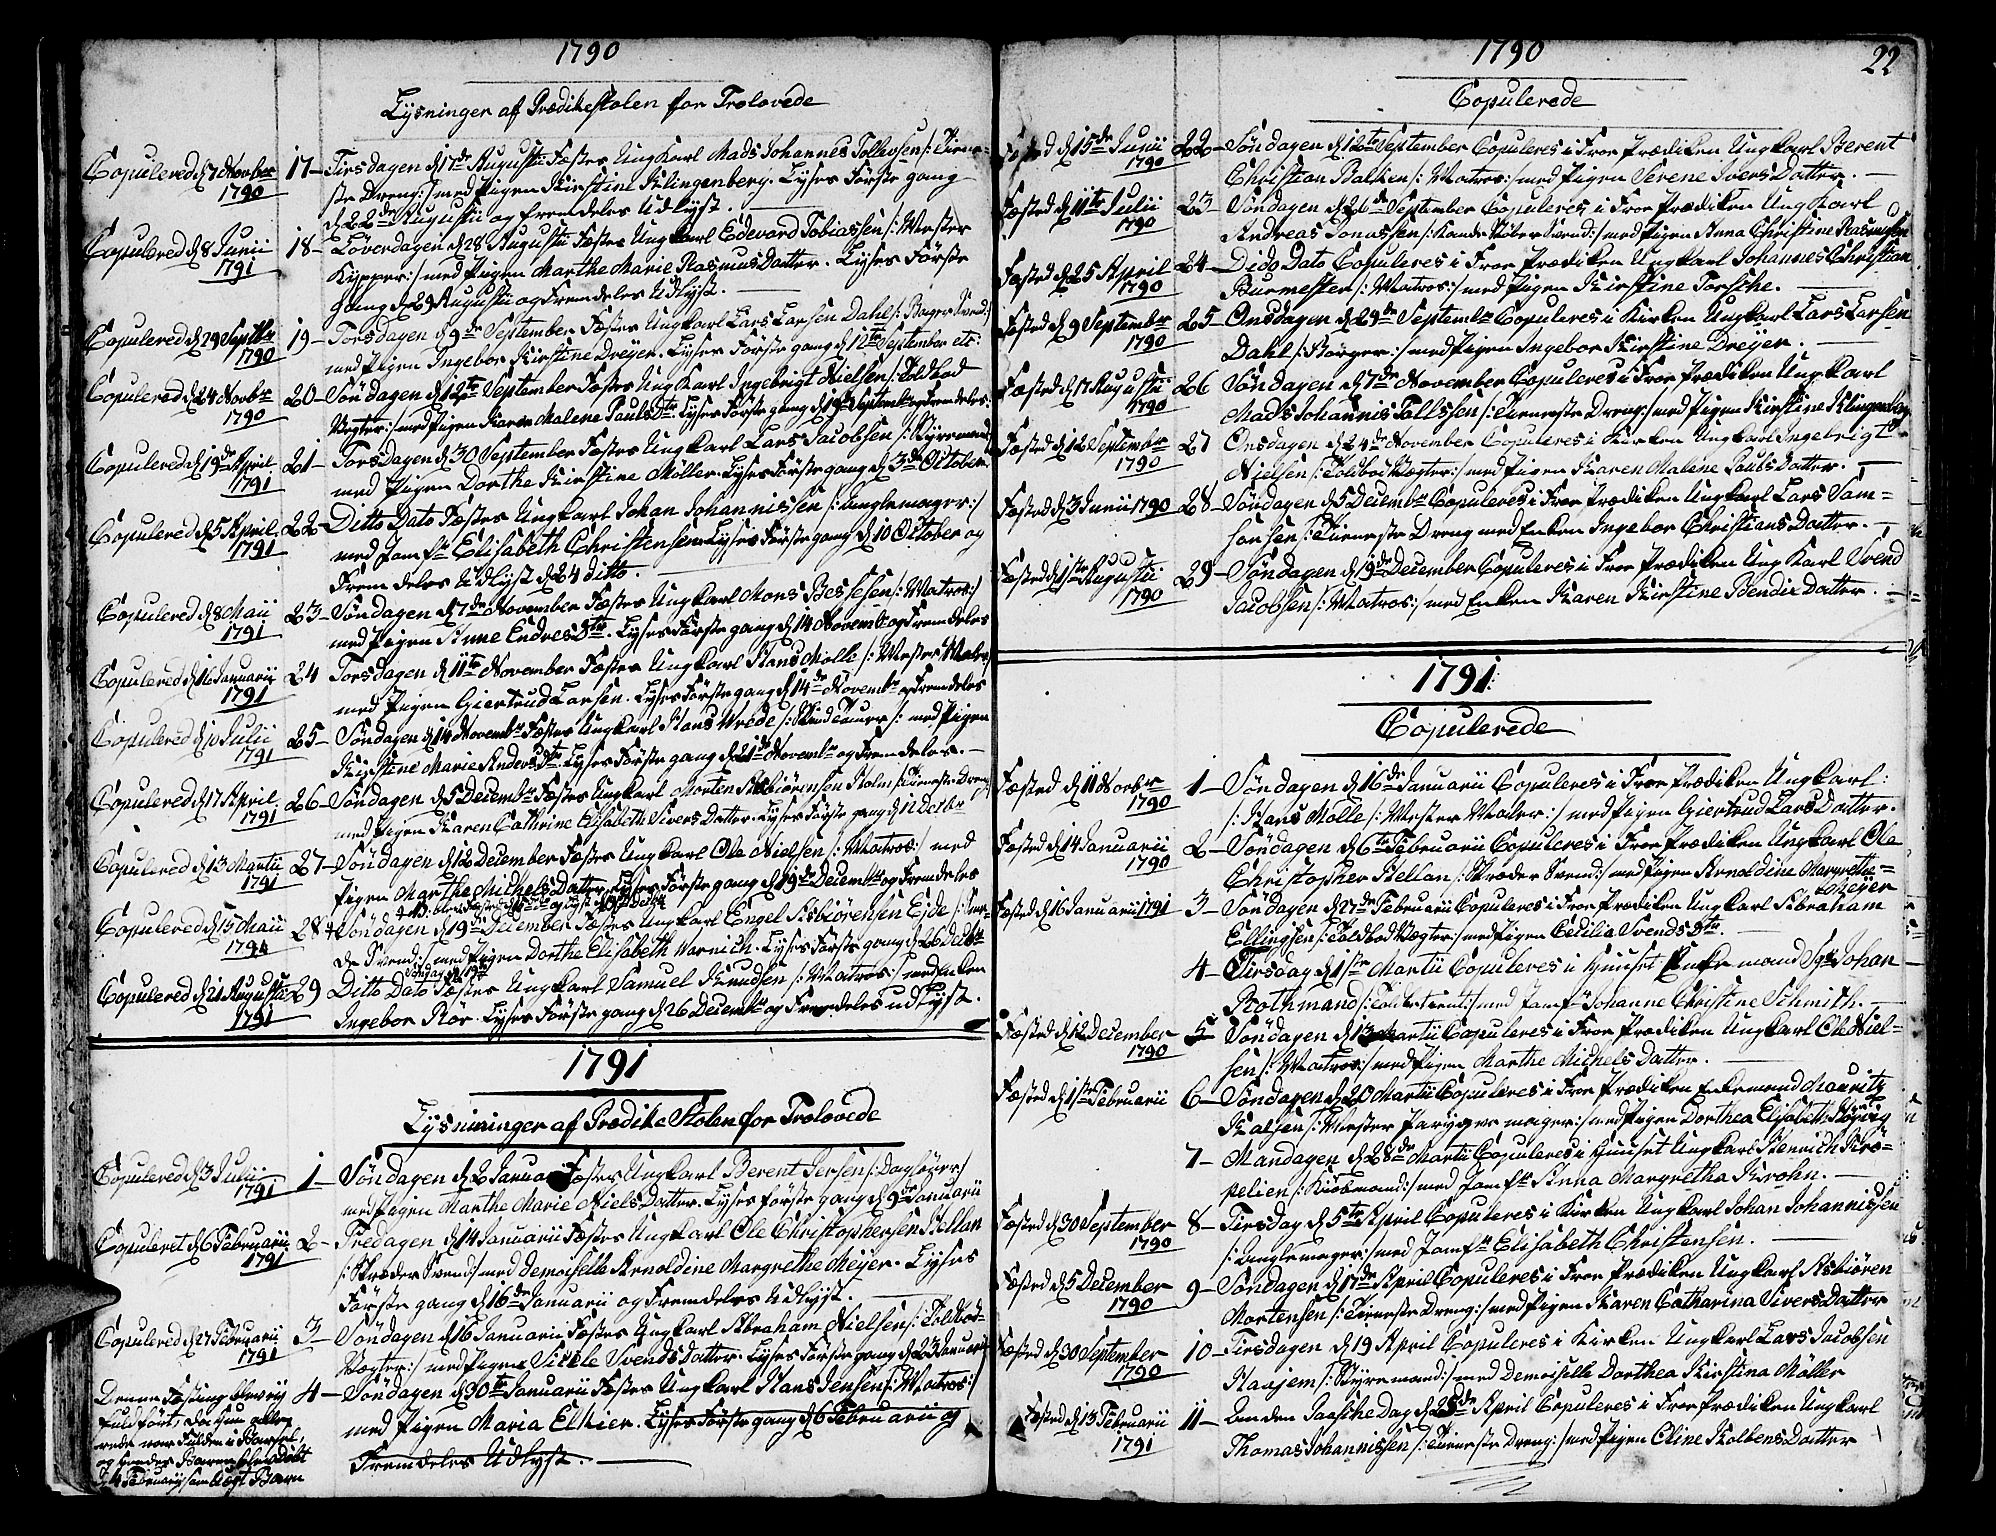 1790
Lysninger af Prædikestolen for Trolovede
Copulered d 7 Novbr 1790
17 - Tirsdagen d 17de Augusti Fæstes Ung Karl Mads Johannes Tollevsen /: Tiene-
ste Dreng :/ med Pigen Kirstine Klingenberg. Lyses Første gang
d 22de Augustii og fremdeles Udlyst.
Copulered d 8 Junii 1791
18 - Løverdagen d 28 Augustii Fæstes Ung Karl Edevard Tobiassen /: Mester
Kypper :/ med Pigen Marthe Marie Rasmus Datter. Lyses Første
Gang d 29 Augustii og Fremdeles Udlyst.
Copulered d 29 Septbr 1790
19 - Torsdagen d 9de September Fæstes Ungkarl Lars Larsen Dahl /: Bager Svend :/
med Pigen Ingebor Kirstine Dreyer. Lyses Første gang d 12te September etc:
Copulered d 24 Novbr 1790
20 - Søndagen d 12te September Fæstes Ung Karl Ingebrigt Nielsen /: Toldbod
Vægter :/ med Pigen Karen Malene Pauls Dtr. Lyses Første gang d 19de Septembr og Fremdeles.
Copulered d 19de April 1791
21 - Torsdagen d 30 September Fæstes Ungkarl Lars Jacobsen /: Styremand
med Pigen Dorthe Kirstine Möller. Lyses Første gang d 3de October.
Copulered d 5 April 1791
22 - Ditto Dato Fæstes Ungkarl Johan Johannissen /: Unglemager :/
med Jomfr Elisabeth Christensen Lyses Første gang d 10 October og
Fremdeles Udlyst d 24 ditto.
Copulered d 8 Maii 1791
23 - Søndagen d 7de November Fæstes Ungkarl Mons Bessesen /: Matros :/
med Pigen Anne Endres Dtr. Lyses Første gang d 14 Novembr og Fremdeles
Copulered d 16 Januarii 1791
24 Torsdagen d 11te November Fæstes Ungkarl Hans Mölle /: Mester Maler :/
med Pigen Giertrud Larsen. Lyses Første gang d 14de Novembr og Fremdeles
Copulered d 10 Julii 1791
25 - Søndagen d 14 Novembr Fæstes Ungkarl Hans Wrede /: :/ med Pigen
Kirstine Marie Anders Dtr. Lyses Første gang d 21de Novembr og Fremdeles.
Copulered d 17 April 1791
26 - Søndagen d 5 Decembr Fæstes Ungkarl Morten Asbiörensen Holm /: Tieneste Dreng :/
med Pigen Karen Cathrine Elisabeth Sivers Datter. Lyses Første gang d 12 Decbr
Copulered d 13 Martii 1791
27 - Søndagen d 12 December Fæstes Ungkarl Ole Nielsen /: Matros :/ med
Pigen Marthe Michels Datter. Lyses Første gang d 19de Decembr og Fremdeles
Copulered d 15 Maii 1791
28 Søndagen d 19de December Fæstes Ungkarl Engel Asbiörensen Eide /:
de Svend :/ med Pigen Dorthe Elisabeth Warnich. Lyses Første gang d 26 Decbr
Copulered d 21 Augustii 1791
29 Ditto Dato Fæstes Ungkarl Samuel Knudsen /: Matros :/ med Enken
Søndag d 19de
Ingebor Rör. Lyses Første gang d 26 Decembr og Fremdeles udlyst.
1791
Lysninger af Prædike Stolen for Trolovede
Copulered d 3 Julii 1791
1 - Søndagen d 2 Januarii Fæstes Ungkarl Berent Iersen /: Dagløner :/
med Pigen Marthe Marie Niels Datter. Lyses første gang d 9de Januarii
Copuleret d 6 Februarii 1791
2 - Fredagen d 14 Januarii Fæstes Ungkarl Ole Christophersen Hellan
/: Skræder Svend :/ med Demoiselle Arnoldine Margrethe Meyer. Lyses
Første gang d 16de Januarii og Fremdeles Udlyst.
Copulered d 27 Februarii 1791
3 - Søndagen d 16 Januarii Fæstes Ungkarl Abraham Nielsen /: Toldbod-
Vægter :/ med Pigen Sicele Svends Datter. Lyses Første gang d 23 Januarii
Denne Fæsting blev ej
fuldført, da hun aller-
rede var falden i Barsel,
og hendes Barn blev Døbt
d 4 Februarij som Uægt Barn
4 - Søndagen d 30te Januarii Fæstes Ungkarl Hans Jensen /: Matros :/
med Pigen Maria Elkier. Lyses Første gang d 6 Februarii og
Fremdeles Udlyst.
1790
22
Copulerede
Fæsted d 15de Junii 1790
22 - Søndagen d 12te September Copuleres i Froe Prædiken Ungkarl Berent
Christian Balken /: Matros :/ med Pigen Serene Ivers Datter.
Fæsted d 11te Julii 1790
23 - Søndagen d 26de September Copuleres i Froe Prædiken Ungkarl
Andreas Jonassen /: Kande Støber Svend :/ med Pigen Anna Christine Rasmussen
Fæsted d 25 April 1790
24 - Dido Dato Copuleres i Froe Prædiken Ungkarl Johannes Christian
Burmester /: Matros :/ med Pigen Kirstine Torsche.
Fæsted d 9 Septembr 1790
25 - Onsdagen d 29de Septembr Copuleres i Kirken Ungkarl Lars Larsen
Dahl /: Borger :/ med Pigen Ingebor Kirstine Dreyer.
Fæsted d 17 Augustii 1790
26 Søndagen d 7de November Copuleres i Froe Prædiken Ungkarl
Mads Johannis Tollssen /: Tieneste Dreng :/ med Pigen Kirstine Klingenberg
Fæsted d 12 Septembr 1790
27 Onsdagen d 24de November Copuleres i Kirken Ungkarl Ingebrigt
Nielsen /: Toldbod Vægter :/ med Pigen Karen Malene Pauls Datter.
Fæsted d 3 Junii 1790
28 - Søndagen d 5 Decembr Copuleres i Froe Prædiken Ungkarl Lars Sam-
sonsen /: Tieneste Dreng med Enken Ingebor Christians Datter.
Fæsted d 1te Augustii 1790
29 - Søndagen d 19de December Copuleres i Froe Prædiken Ung Karl Svend
Jacobsen /: Matros :/ med Enken Karen Kirstine Bendix Datter.
1791
Copulerede
Fæsted d 11 Novbr 1790
1 - Søndagen d 16de Januarii Copuleres i Froe Prædiken Ungkarl:
/: Hans Mölle /: Mester Maler :/ med Pigen Giertrud Lars Datter.
Fæsted d 14 Januarii 1790
2 - Søndagen d 6te Februarii Copuleres i Froe Prædiken Ungkarl Ole
Christopher Hellan /: Skræder Svend :/ med Pigen Arnoldine Margrethe
Meyer
Fæsted d 16 Januarii 1791
3 - Søndagen d 27de Februarii Copuleres i Froe Prædiken Ungkarl Abraham
Ellingsen /: Toldbod Vægter :/ med Pigen Cecilia Svends Dtr.
4 - Tirsdag d 1ste Martii Copuleres i Huuset Enke mand Sgr Johan
Rothmand /: :/ med Jomfr Johanne Christine Schmith.
Fæsted d 12 December 1790
5 - Søndagen d 13 Martii Copuleres i Froe Prædiken Ungkarl Ole Niel-
sen /: Matros :/ med Pigen Marthe Michels Datter.
Fæsted d 1ste Februarii
6 - Søndagen d 20 Martii Copuleres i Froe Prædiken Enkemand Mauritz
Kalsen /: Mester Parygvemager :/ med Pigen Dorthea Elisabeth
7 - Mandagen d 28de Martii Copuleres i Huuset Ungkarl Henrich Krö-
pelien /: Kiöbmand :/ med Jomfr Anna Margretha Krohn.
Fæsted d 30 September 1790
8 - Tirsdag d 5te April Copuleres i Kirken Ungkarl Johan Johannissen
/: Unglemager :/ med Jomfr Elisabeth Christensen.
Fæsted d 5 December 1790
9 - Søndagen d 17de April Copuleres i Froe Prædiken Ungkarl Asbiören
Mortensen /: Tieneste Dreng :/ med Pigen Karen Catharina Sivers Datter
Fæsted d 30 September 1790
10 - Tirsdagen d 19 April Copuleres i Kirken Ungkarl Lars Jacobsen
Haajem /: Styremand :/ med Demoiselle Dorthea Kirstina Möller
Fæsted d 13 Februarii 1791
11 - Anden Paaske Dag d 25de April Copuleres i Froe Prædiken Ungkarl
Thomas Johannissen /: Tieneste Dreng :/ med Pigen Eline Kolbens Datter